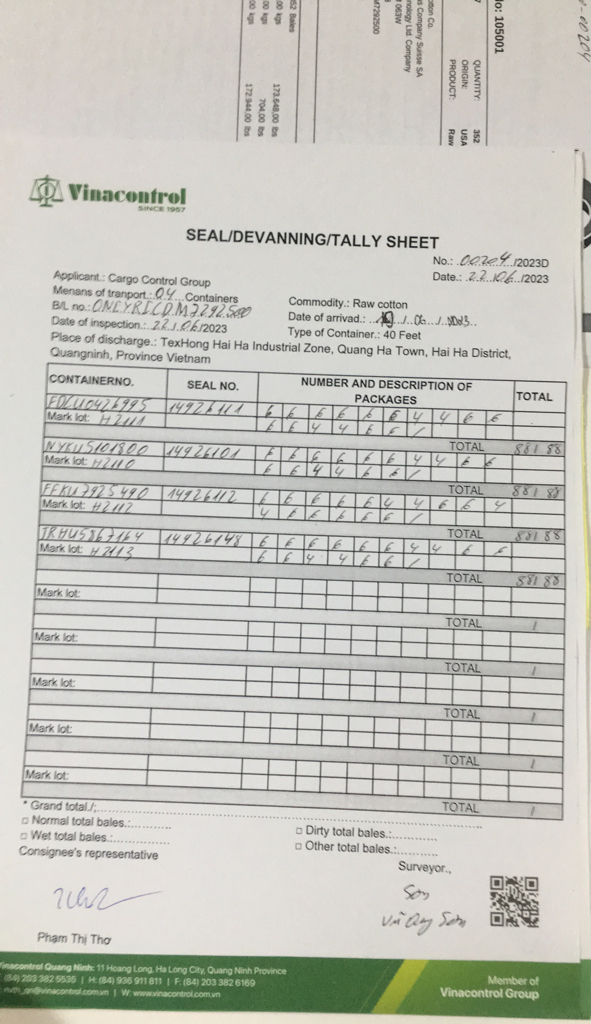 No: 105001
QUANTITY: 352
ORIGIN: USA
PRODUCT: Raw
tton Co.
s Company Suisse SA
nology Ltd. Company
M7292500
352 Bales
173.648,00 lbs
704,00 lbs
172.944,00 lbs
00204
Vinacontrol
SINCE 1957
SEAL/DEVANNING/TALLY SHEET
No.: 00204 /2023D
Date.: 22.06 /2023
Applicant.: Cargo Control Group
Menans of tranport.: 04 Containers
Commodity.: Raw cotton
B/L no.: ONEYRICDM7292500
Date of arrivad.: / 06 / 2023
Date of inspection.: 22/06/2023
Type of Container.: 40 Feet
Place of discharge.: TexHong Hai Ha Industrial Zone, Quang Ha Town, Hai Ha District,
Quangninh, Province Vietnam
CONTAINERNO. SEAL NO. NUMBER AND DESCRIPTION OF PACKAGES TOTAL
14926111 6 6 6 6 6 6 4 4 6 6
Mark lot: H2111 6 6 4 4 6 6 /
TOTAL 88/88
14926101 6 6 6 6 6 6 4 4 6 6
Mark lot: H2110 6 6 4 4 6 6 /
TOTAL 88/88
FFKU7925490 14926112 6 6 6 6 6 4 4 6 6 4
Mark lot: H2112 4 6 6 6 6 6 /
TOTAL 88/88
TRHU5867164 14926148 6 6 6 6 6 6 4 4 6 6
Mark lot: H2113 6 6 4 4 6 6 /
TOTAL 88/88
Mark lot:
TOTAL /
Mark lot:
TOTAL /
Mark lot:
TOTAL /
Mark lot:
TOTAL /
Mark lot:
TOTAL /
* Grand total./:
□ Normal total bales.:
□ Dirty total bales.:
□ Wet total bales.:
□ Other total bales.:
Consignee's representative
Surveyor.,
Sơn
Vũ Quý Sơn
Phạm Thị Thơ
Vinacontrol Quang Ninh: 11 Hoang Long, Ha Long City, Quang Ninh Province
(84) 203 382 5535 | H: (84) 936 911 611 | F: (84) 203 382 6169
@vinacontrol.com.vn | W: www.vinacontrol.com.vn
Member of
Vinacontrol Group